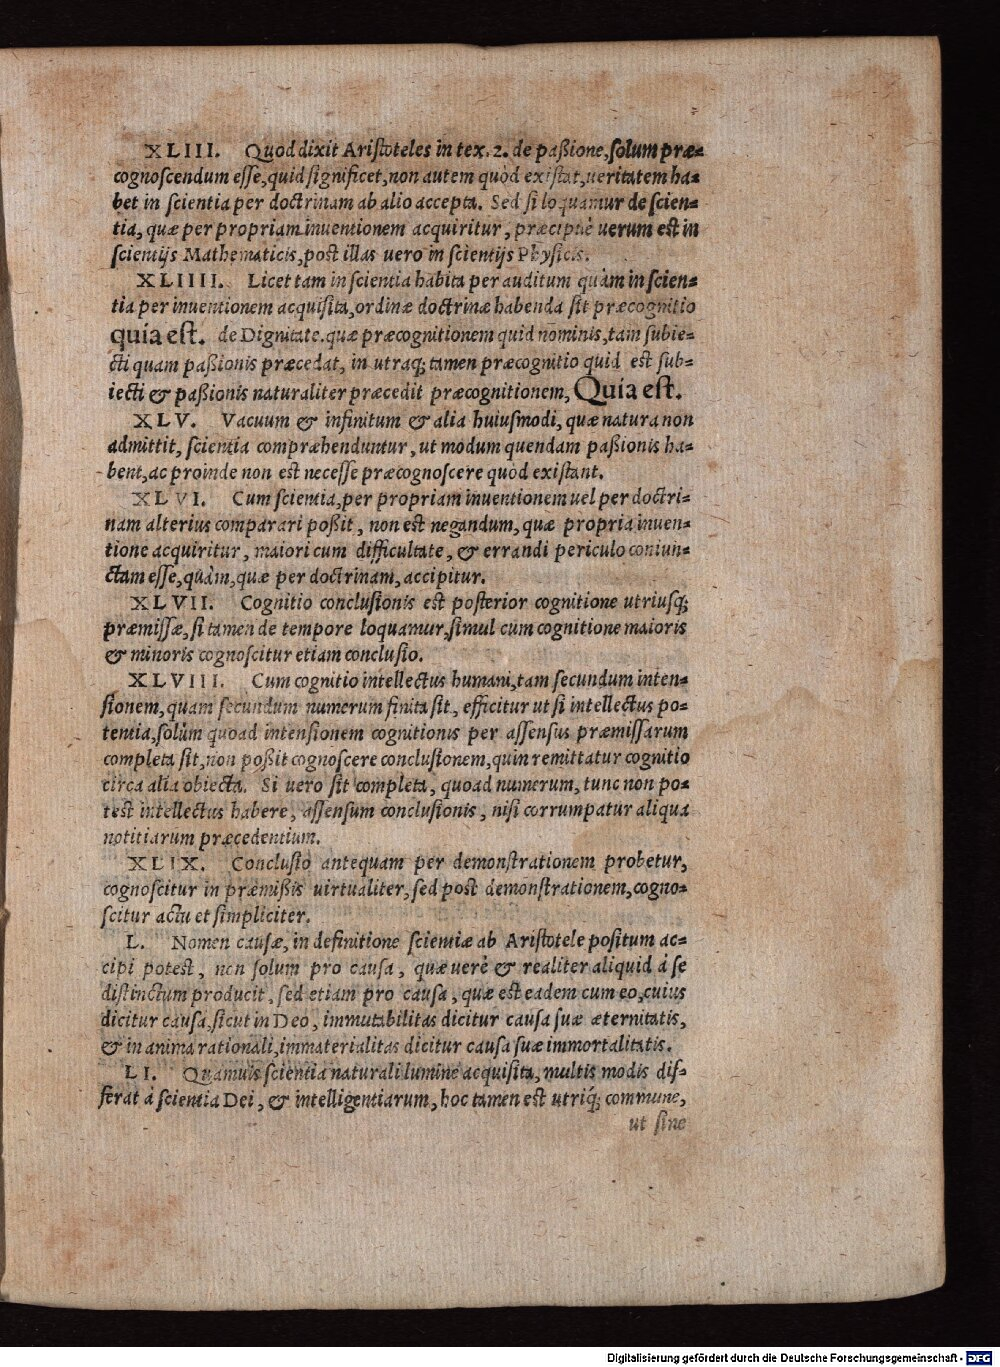 XLIII. Quod dixit Aristoteles in tex. 2. de paßione, solum præ=
cognoscendum esse, quid significet, non autem quòd existat, ueritatem ha=
bet in scientia per doctrinam ab alio accepta. Sed si loquamur de scien=
tia, quæ per propriam inuentionem acquiritur, præcipuè uerum est in
scientijs Mathematicis, post illas uero in scientijs Physicis.
XLIIII. Licet tam in scientia habita per auditum quàm in scien=
tia per inuentionem acquisita, ordinæ doctrinæ habenda sit præcognitio
quia est. de Dignitate. quæ præcognitionem quid nominis, tam subie=
cti quam paßionis præcedat, in utraq; tamen præcognitio quid est sub=
iecti & paßionis naturaliter præcedit præcognitionem, Quia est.
XLV. Vacuum & infinitum & alia huiusmodi, quæ natura non
admittit, scientia compræhenduntur, ut modum quendam paßionis ha=
bent, ac proinde non est necesse præcognoscere quòd existant.
XLVI. Cum scientia, per propriam inuentionem uel per doctri=
nam alterius comparari poßit, non est negandum, quæ propria inuen=
tione acquiritur, maiori cum difficultate, & errandi periculo coniun=
ctam esse, quàm, quæ per doctrinam, accipitur.
XLVII. Cognitio conclusionis est posterior cognitione utriusq;
præmissæ, si tamen de tempore loquamur, simul cum cognitione maioris
& minoris cognoscitur etiam conclusio.
XLVIII. Cum cognitio intellectus humani, tam secundum inten=
sionem, quam secundum numerum finita sit, efficitur ut si intellectus po=
tentia, solùm quoad intensionem cognitionis per assensus præmissarum
completa sit, non poßit cognoscere conclusionem, quin remittatur cognitio
circa alia obiecta. Si uero sit completa, quoad numerum, tunc non po=
test intellectus habere, assensum conclusionis, nisi corrumpatur aliqua
notitiarum præcedentium.
XLIX. Conclusio antequam per demonstrationem probetur,
cognoscitur in præmißis uirtualiter, sed post demonstrationem, cogno=
scitur actu et simpliciter.
L. Nomen causæ, in definitione scientiæ ab Aristotele positum ac=
cipi potest, non solum pro causa, quæ uerè & realiter aliquid à se
distinctum producit, sed etiam pro causa, quæ est eadem cum eo, cuius
dicitur causa, sicut in Deo, immutabilitas dicitur causa suæ æternitatis,
& in anima rationali, immaterialitas dicitur causa suæ immortalitatis.
LI. Quamuis scientia naturali lumine acquisita, multis modis dif=
ferat à scientia Dei, & intelligentiarum, hoc tamen est utriq; commune,
ut sine
Digitalisierung gefördert durch die Deutsche Forschungsgemeinschaft - DFG